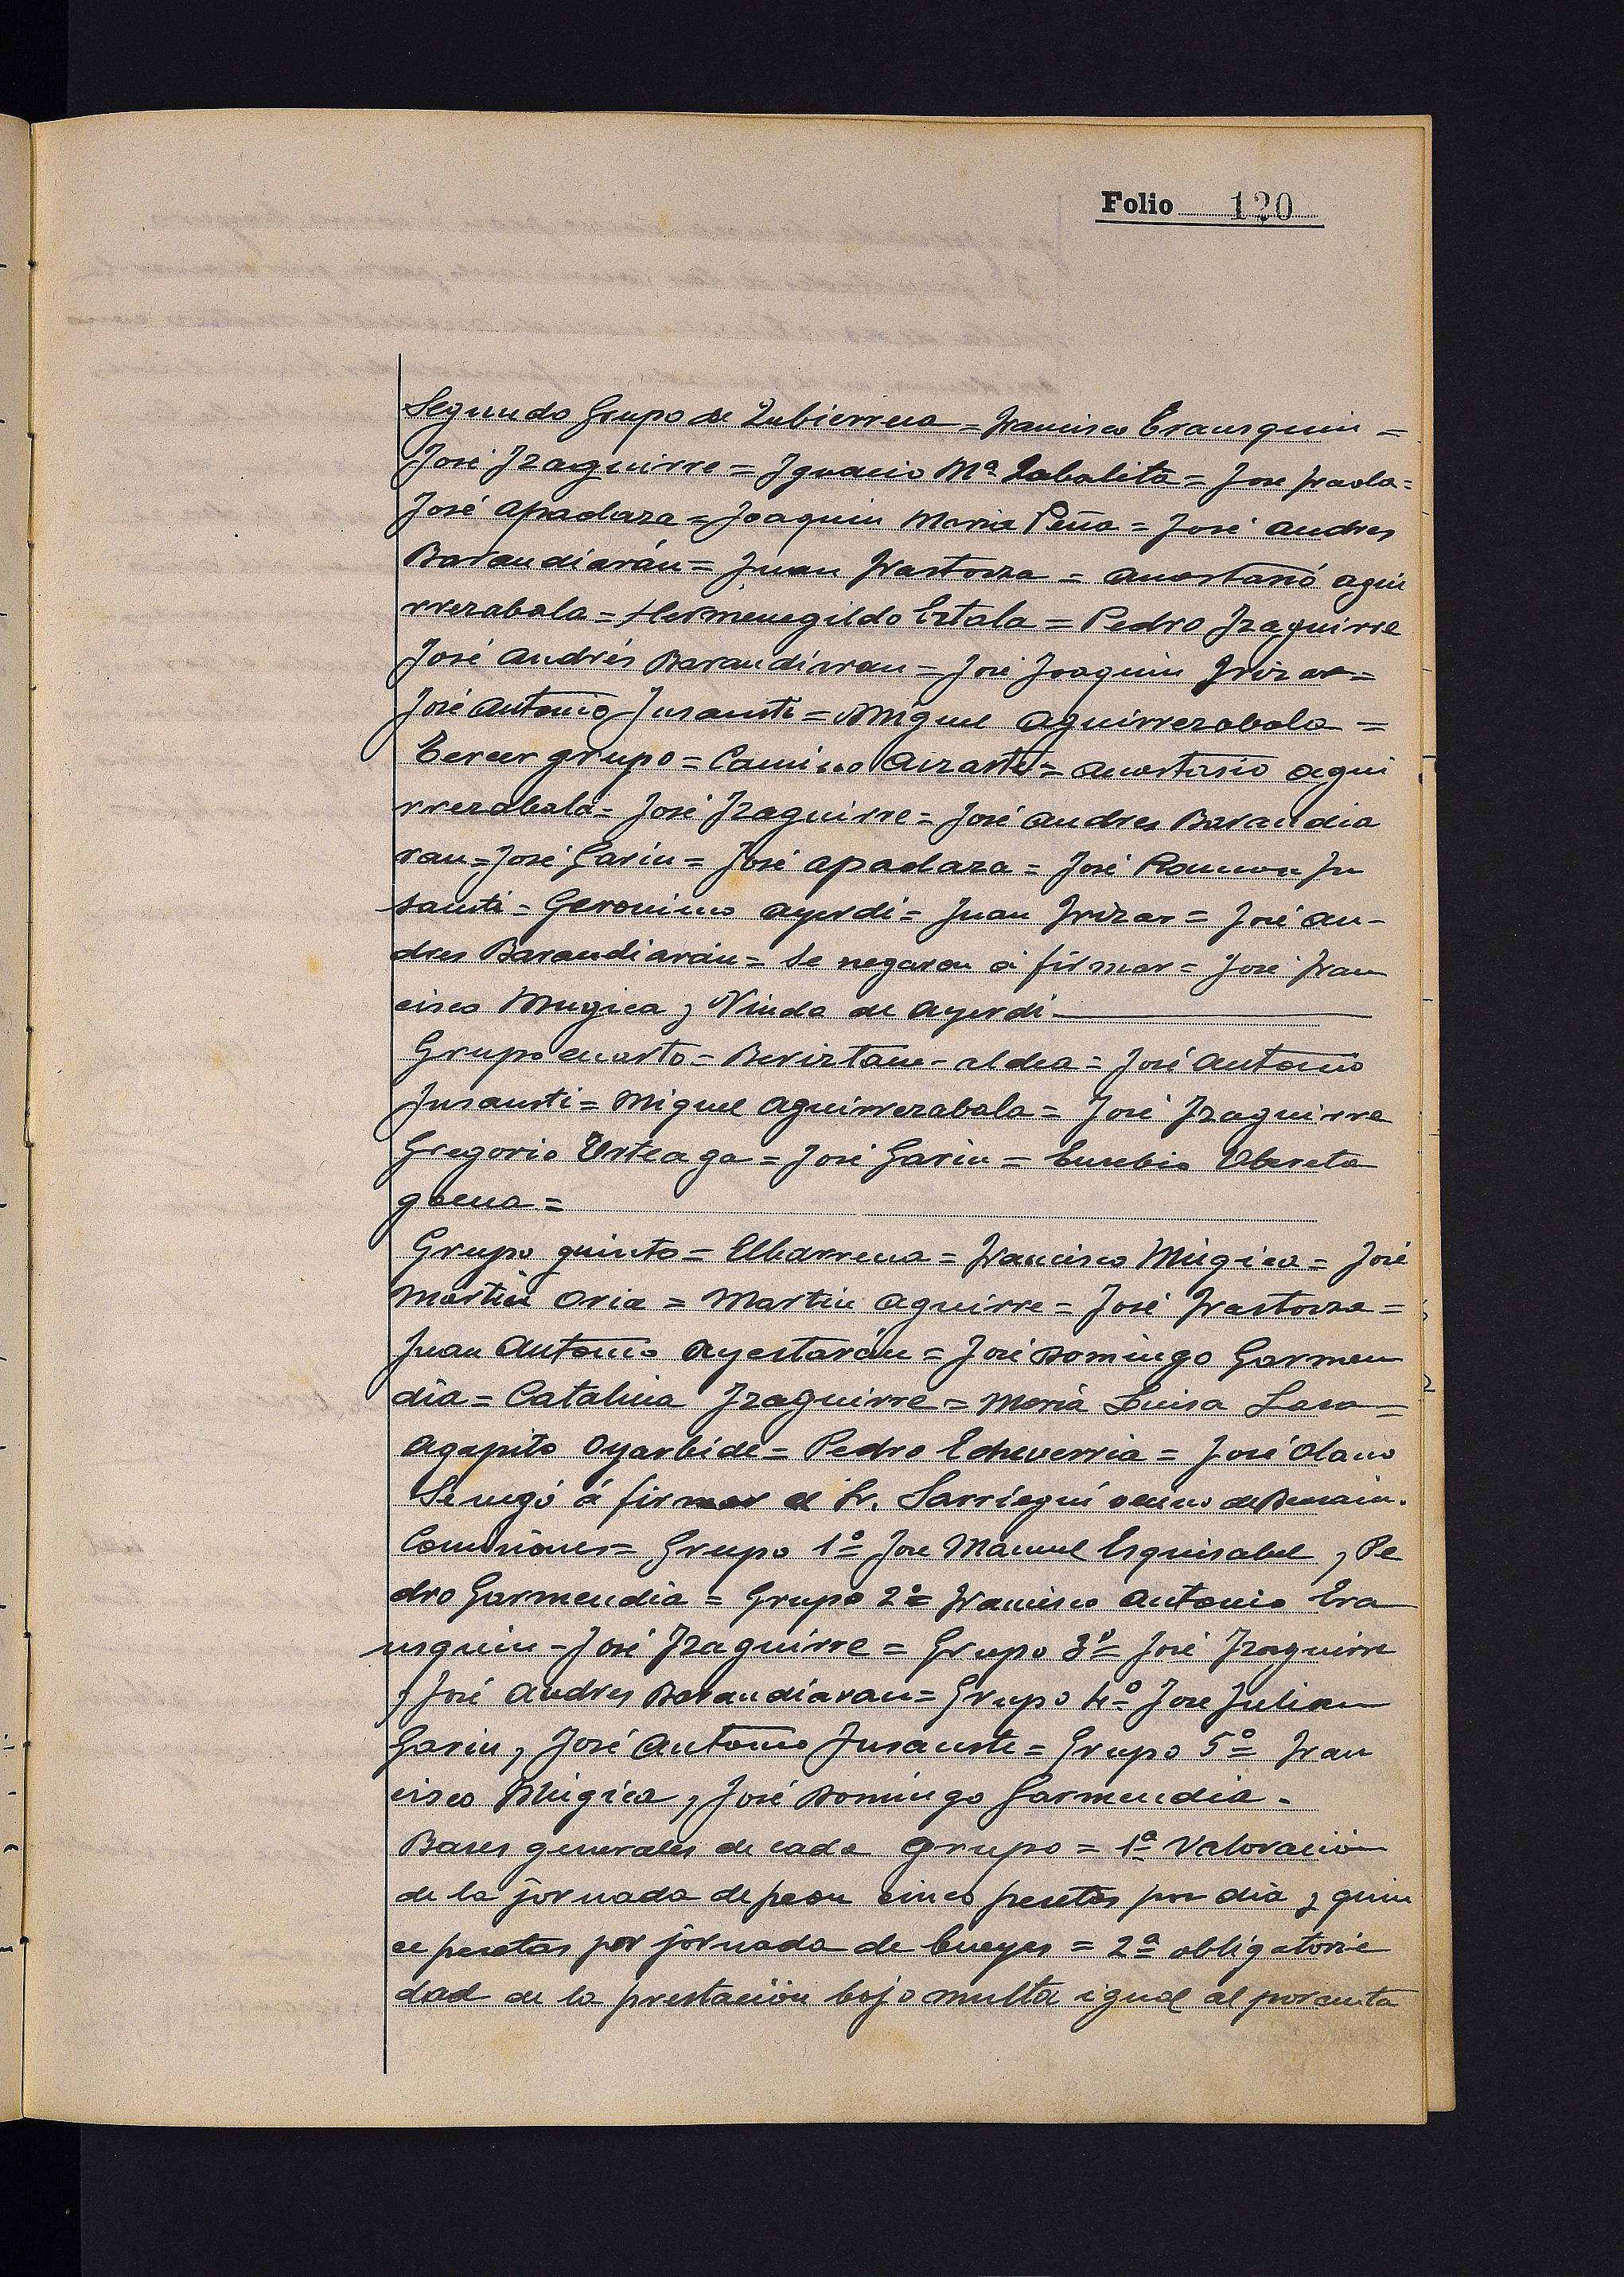 Folio 120
Segundo Grupo de Zubierrena = Francisco Erausquin =
José Izaguirre = Ignacio Mª Zabaleta = Jose Iraola =
José Apaolaza = Joaquin Maria Peña = José Andres
Barandiarán = Juan Irastorza = Anastasió Agui
rrezabala = Hermenegildo Estala = Pedro Izaguirre
José Andrés Barandiaran = José Joaquin Irizar =
José Antonio Insausti = Miguel Aguirrezabala =
Tercer grupo = Camino Aizarte = Anastasio Agui
rrezabala = José Izaguirre = José Andres Barandia
ran = José Garin = José Apaolaza = José Ramon In
sausti = Geronimo Ayerdi = Juan Irizar = José An-
dres Barandiarán = Se negaron á firmar = José Fran
cisco Mugica y Viuda de Ayerdi
Grupo cuarto = Beriztain-aldea = José Antonio
Insausti = Miguel Aguirrezabala = José Izaguirre
Gregorio Urteaga = José Garin = Eusebio Ubereta
goena =
Grupo quinto = Elbarrena = Francisco Múgica = José
Martin Oria = Martin Aguirre = José Irastorza =
Juan Antonio Ayestarán = José Domingo Garmen
dia = Catalina Izaguirre = Maria Luisa Lasa =
Agapito Oyarbide = Pedro Echeverria = José Olano
Se negó á firmar el Sr. Sarriegui de Beasain.
Comisiones = Grupo 1º Jose Manuel Esquisabel y Pe
dro Garmendia = Grupo 2º Francisco Antonio Era
usquin = José Izaguirre = Grupo 3º José Izaguirre
y José Andres Barandiaran = Grupo 4º Jose Julian
Garin y José Antonio Insausti = Grupo 5º Fran
cisco Múgica y José Domingo Garmendia.
Bases generales de cada grupo = 1ª Valoración
de la jornada de peon cinco pesetas por dia y quin
ce pesetas por jornada de bueyes = 2ª obligatorie
dad de la prestación bajo multa igual al